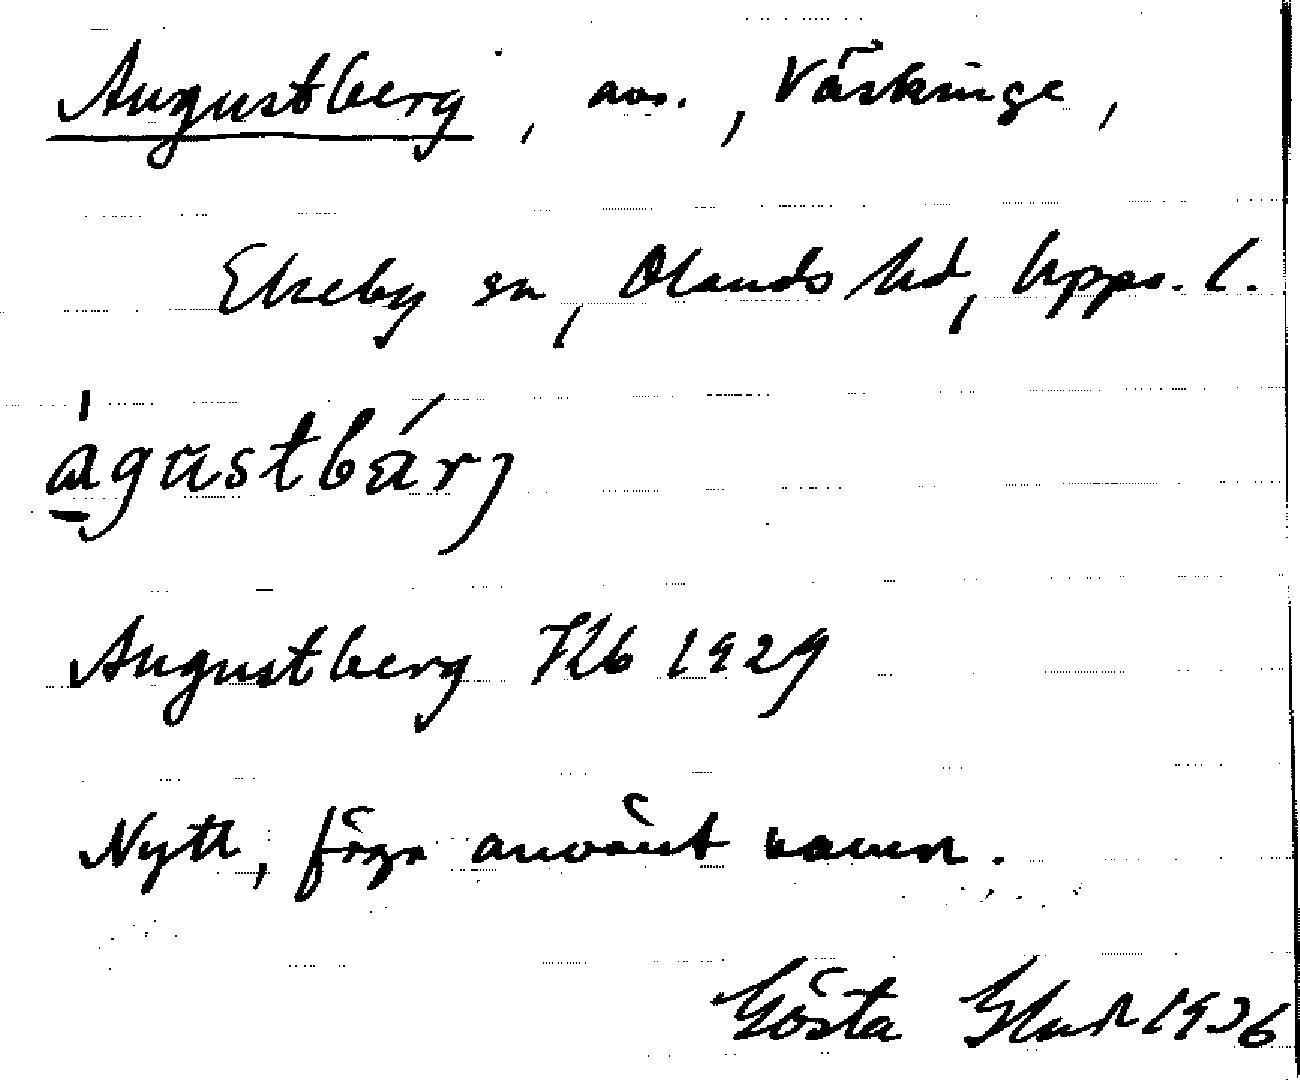 Augustberg, avs., Väskinge,
Ekeby sn, Olands hd, Upps. l.
águstbä́rj
Augustberg Kb 1929
Nytt, föga använt namn.
Gösta 1936